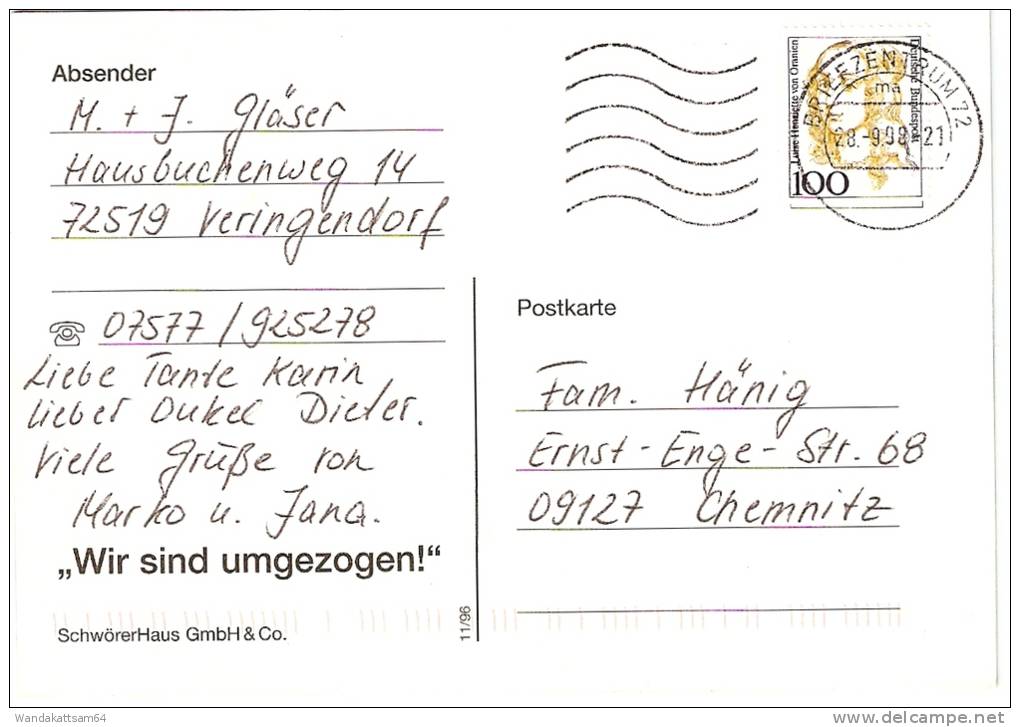 Absender
M. + J. Gläser
Hausbuchenweg 14
72519 Veringendorf
07577 / 925278
Liebe Tante Karin
lieber Onkel Dieter.
Viele Grüße von
Marko u. Jana.
„Wir sind umgezogen!“
SchwörerHaus GmbH & Co.
11/96
Luise Henriette von Oranien
Deutsche Bundespost
100
BRIEFZENTRUM 72
ma
28.-9.98-21
Postkarte
Fam. Hänig
Ernst-Enge-Str. 68
09127 Chemnitz
Wandakattsam64
delcampe.net